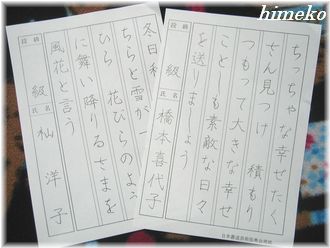 himeko
ちっちゃな幸せたく
さん見つけ 積もり
つもって大きな幸せ
ことしも素敵な日々
を送りましょう
段級 級 氏名 橋本喜代子
冬日和
ちらと雪が一
ひら 花びらのよう
に舞い降りるさまを
風花と言う
段級 級 氏名 杣 洋子